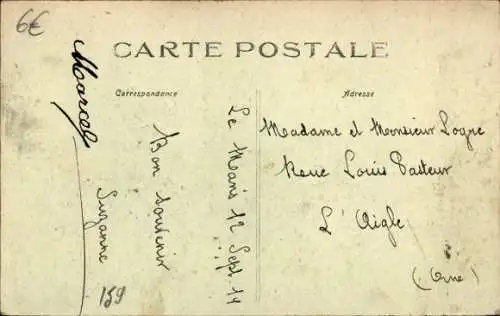 6€
CARTE POSTALE
Correspondance
Adresse
Le Mans 12 Sept. 19
Bon Souvenir
Suzanne
Marcel
159
Madame et Monsieur Logre
Rue Louis Pasteur
L'Aigle
(Orne)